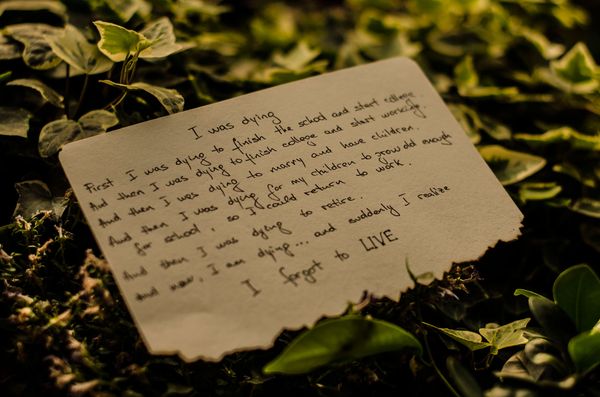 I was dying
First I was dying to finish the school and start college.
And then I was dying to finish college and start working.
And then I was dying to marry and have children.
And then I was dying for my children to grow old enough
for school, so I could return to work.
And then I was dying to retire.
And now, I am dying... and suddenly I realize
I forgot to LIVE